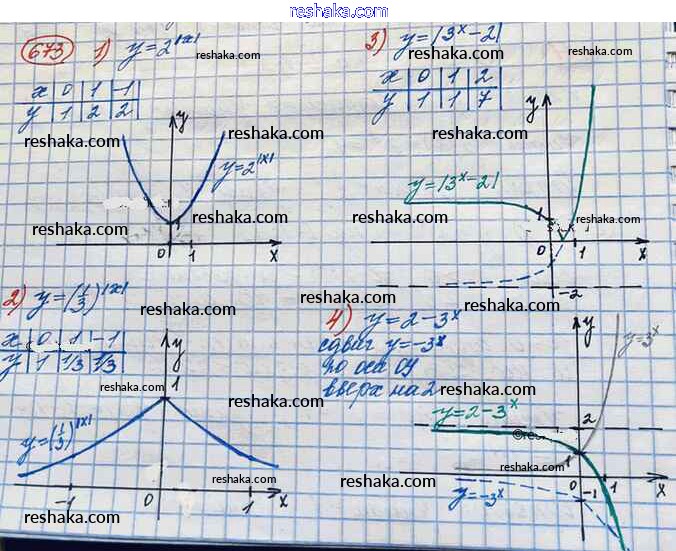 reshaka.com
673 1) y=2^|x|
x | 0 | 1 | -1
y | 1 | 2 | 2
y
y=2^|x|
1
0 1 x
2) y=(1/3)^|x|
x | 0 | 1 | -1
y | 1 | 1/3 | 1/3
y
1
y=(1/3)^|x|
-1 0 1 x
3) y=|3^x-2|
x | 0 | 1 | 2
y | 1 | 1 | 7
y
y=|3^x-2|
1
0 1 x
-2
4) y=2-3^x
сдвиг y=-3^x
по оси Oy
вверх на 2
y
y=3^x
y=2-3^x
2
1
0 1 x
-1
y=-3^x
reshaka.com
reshaka.com
reshaka.com
reshaka.com
reshaka.com
reshaka.com
reshaka.com
reshaka.com
reshaka.com
reshaka.com
reshaka.com
reshaka.com
reshaka.com
reshaka.com
reshaka.com
reshaka.com
reshaka.com
reshaka.com
reshaka.com
reshaka.com
reshaka.com
reshaka.com
reshaka.com
reshaka.com
reshaka.com